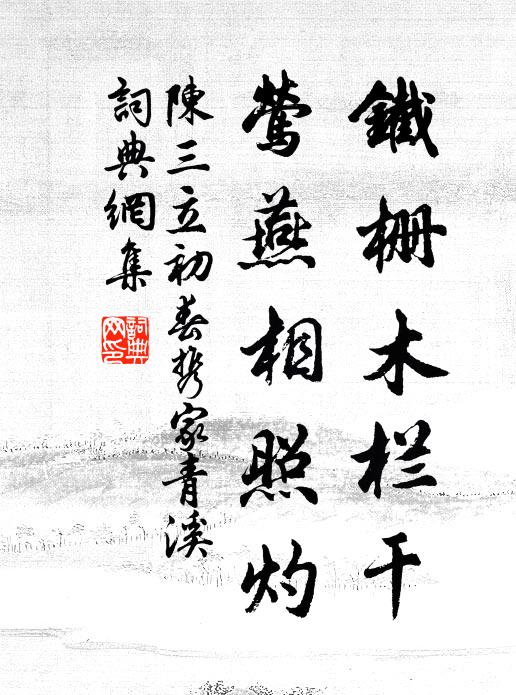 鐵栅木栏干
莺燕相照灼
陳三立初春携家青溪
詞典網集
詞典網印